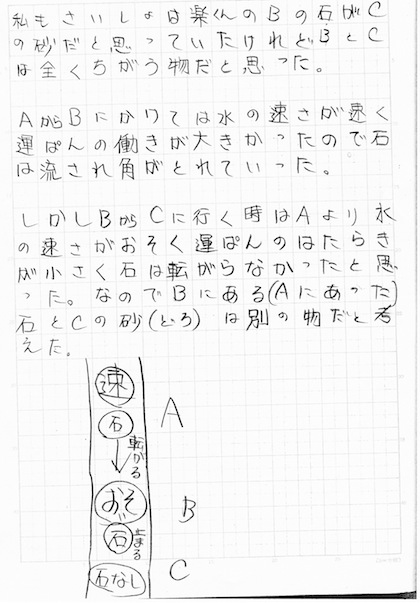 私もさいしょは楽くんのBの石がC
の砂だと思っていたけれどBとC
は全くちがう物だと思った。
AからBにかけては水の速さが速く
運ぱんの働きが大きかったので石
は流され角がとれていった。
しかしBからCに行く時はAより水
の速さがおそく運ぱんのはたらき
が小さく石は転がらなかったと思
った。なのでBにある(Aにあった)
石とCの砂(どろ)は別の物だと考
えた。
速
石
A
転がる
おそ
B
石
止まる
石なし
C